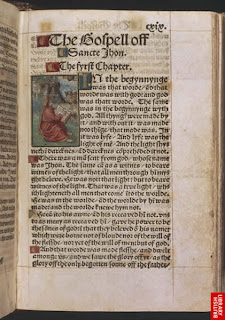 cxix.
The Gospell off
Sancte Jhon.
The fyrst Chapter.
In the begynnynge
was that worde/ ād that
worde was with god: and god
was thatt worde. The same
was in the begynnynge wyth
god. All thyngs were made by
it/ and with out it/ was made
noo thige/ that made was. In it
was lyfe/ And lyfe was the
light of mē/ And the light shyn
eth i darcknes/ ād darcknes cōprehēded it not.
There was a mā sent from god/ whose name
was Jhon. The same cā as a witnes/ to beare
witnes of the light/ that all men through him myght
beleve. He was not that light: but to beare
witnes of the light. That was a true light/ whi
lighteneth all men that come ito the worlde.
He was in the worlde/ ād the worlde by hi was
made: and the worlde knewe hym not.
He cā ito his awne/ ād his receaved hī not. vn
to as many as receaved hī/ gave he power to be
the sonnes of god: that they beleved ō his name:
which were borne not of bloude nor of the will of
the flesshe/ nor yet of the will of men: but of god.
And that worde was made flesshe/ and dwelt
amonge vs/ and we sawe the glory off yt/ as the
glory off the only begotten sonne off the father/
BRITISH
LIBRARY